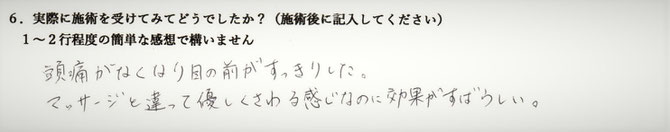 6．実際に施術を受けてみてどうでしたか？（施術後に記入してください）
1～2行程度の簡単な感想で構いません
頭痛がなくなり目の前がすっきりした。
マッサージと違って優しくさわる感じなのに効果がすばらしい。